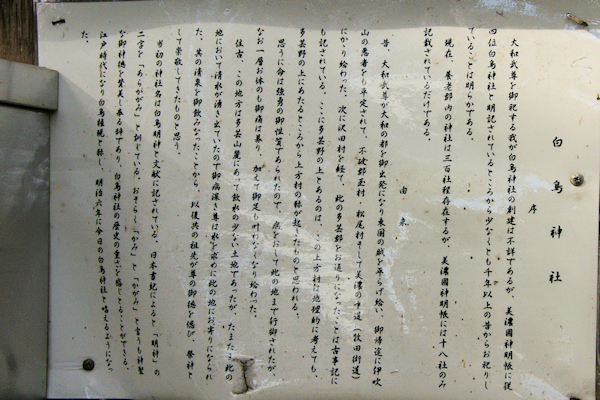 白鳥神社
序
大和武尊を御祀する我が白鳥神社の創建は不詳であるが、美濃國神明帳に従
四位白鳥神社と明記されているところから少なくとも千年以上の昔からお祀りし
ていることは明らかである。
現在、養老郡内の神社は三百社程存在するが、美濃國神明帳には十八社のみ
記載されているだけである。
由来
昔、大和武尊が大和の都を御出発になり東国の賊を平らげ給い、御帰途に伊吹
山の悪者をも平定されて、不破郡玉村、松尾村そして美濃の中道（牧田街道）
にかゝり給わった。次に沢田村を経て、此の多芸郡をお通りになったことは古事記に
も記されている。こゝに多芸野の上とあるのは、この上方村は地理的に考えても、
多芸野の上にあたるところから上方村の称が起きたものと思われる。
思うに命は強勇の御性質であられたので、病をおして此の地まで行御されたが、
なお一層お体のも御痛は募り、加えて御足も叶わなくなり給わった。
往古、この地方は多芸山麓にあって飲水の少ない土地であったが、たまたま此の
地において清水が湧き出ていたので御病深き尊は水を求めに此の地にお寄りになられ
た。其の清泉を御飲みなったことから、以後共の祖先が尊の御徳を偲び、祭神と
して崇敬してきたものと思う。
当初の神社名は白鳥明神と文献に記されている。日本書紀によると「明神」の
二字を「あらかがみ」と訓じている。おそらく「かみ」と「かがみ」と言うも神聖
な御神徳を賛美し奉る辞であり、白鳥神社の歴史の重さを感じとることができる。
江戸時代になり白鳥権現と称し、明治六年に今日の白鳥神社と唱えるようになっ
た。